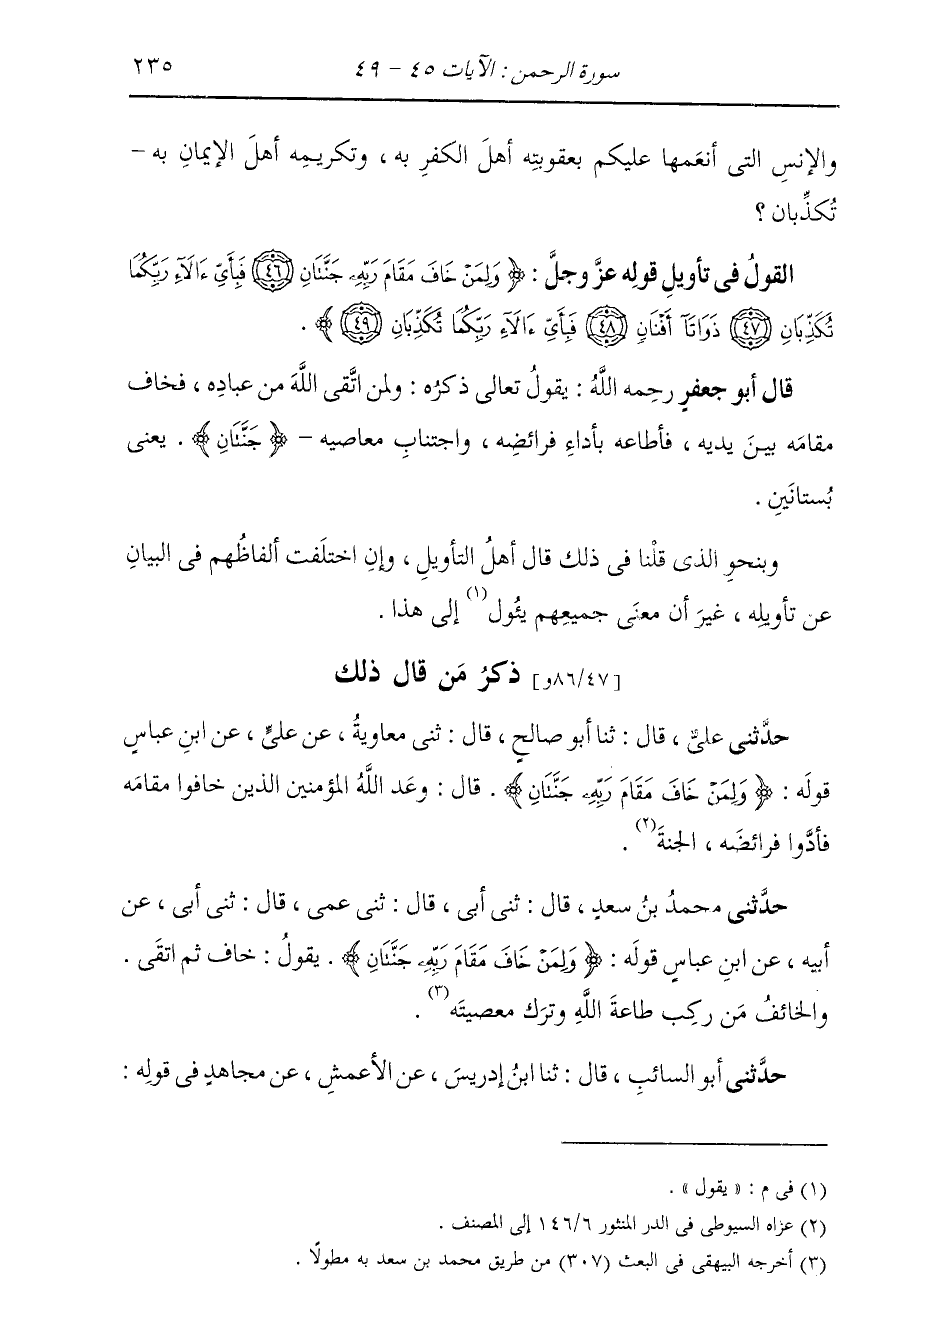 سورة الرحمن : الآيات ٤٥ - ٤٩ ٢٣٥
والإنسِ التى أنعَمها عليكم بعقوبتِه أهلَ الكفرِ به ، وتكريمِه أهلَ الإيمانِ به -
تُكذِّبان ؟
القولُ فى تأويلِ قولِه عزَّ وجلَّ : ﴿ وَلِمَنْ خَافَ مَقَامَ رَبِّهِۦ جَنَّتَانِ ٤٦ فَبِأَيِّ ءَالَآءِ رَبِّكُمَا
تُكَذِّبَانِ ٤٧ ذَوَاتَآ أَفْنَانٍ ٤٨ فَبِأَيِّ ءَالَآءِ رَبِّكُمَا تُكَذِّبَانِ ٤٩ ﴾ .
قال أبو جعفرٍ رحِمه اللَّهُ : يقولُ تعالى ذكرُه : ولمن اتَّقى اللَّهَ من عبادِه ، فخاف
مقامَه بينَ يديه ، فأطاعه بأداءِ فرائضِه ، واجتنابِ معاصيه - ﴿ جَنَّتَانِ ﴾ . يعنى
بُستانَينِ .
وبنحوِ الذى قلْنا فى ذلك قال أهلُ التأويلِ ، وإنِ اختلَفت ألفاظُهم فى البيانِ
عن تأويلِه ، غيرَ أن معنَى جميعِهم يئُول(١) إلى هذا .
[٨٦/٤٧و] ذكرُ مَن قال ذلك
حدَّثنى علىٌّ ، قال : ثنا أبو صالحٍ ، قال : ثنى معاويةُ ، عن علىٍّ ، عن ابنِ عباسٍ
قولَه : ﴿ وَلِمَنْ خَافَ مَقَامَ رَبِّهِۦ جَنَّتَانِ ﴾ . قال : وعَد اللَّهُ المؤمنين الذين خافوا مقامَه
فأدَّوا فرائضَه ، الجنةَ(٢) .
حدَّثنى محمدُ بنُ سعدٍ ، قال : ثنى أبى ، قال : ثنى عمى ، قال : ثنى أبى ، عن
أبيه ، عن ابنِ عباسٍ قولَه : ﴿ وَلِمَنْ خَافَ مَقَامَ رَبِّهِۦ جَنَّتَانِ ﴾ . يقولُ : خاف ثم اتقَى .
والخائفُ مَن ركِب طاعةَ اللَّهِ وترَك معصيتَه(٣) .
حدَّثنى أبو السائبِ ، قال : ثنا ابنُ إدريسَ ، عن الأعمشِ ، عن مجاهدٍ فى قولِه :
(١) فى م : « يقول » .
(٢) عزاه السيوطى فى الدر المنثور ١٤٦/٦ إلى المصنف .
(٣) أخرجه البيهقى فى البعث (٣٠٧) من طريق محمد بن سعد به مطولًا .